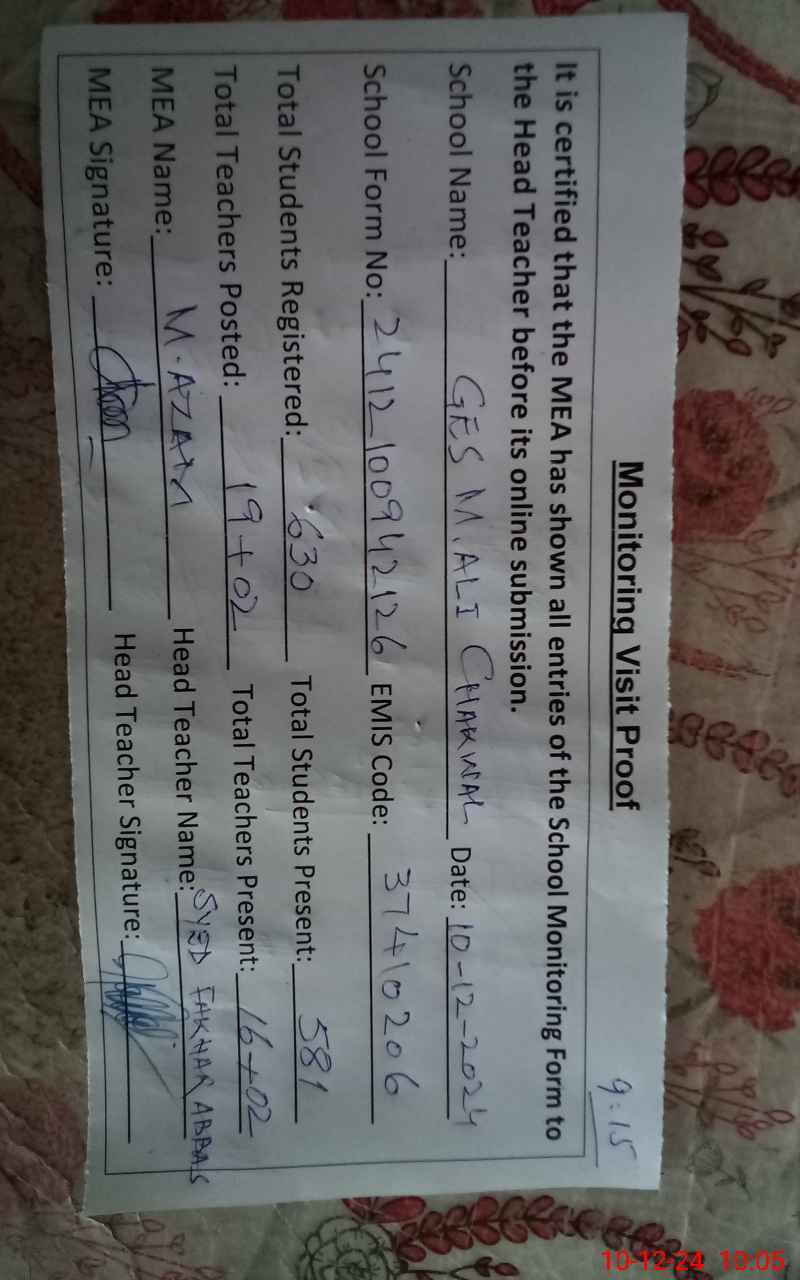 9:15
Monitoring Visit Proof
It is certified that the MEA has shown all entries of the School Monitoring Form to
the Head Teacher before its online submission.
School Name: GES M. ALI CHAKWAL Date: 10-12-2024
School Form No: 2412100942126 EMIS Code: 37410206
Total Students Registered: 630 Total Students Present: 581
Total Teachers Posted: 19+02 Total Teachers Present: 16+02
MEA Name: M. AZAM Head Teacher Name: SYED FAKHAR ABBAS
MEA Signature: Head Teacher Signature:
10-12-24 10:05